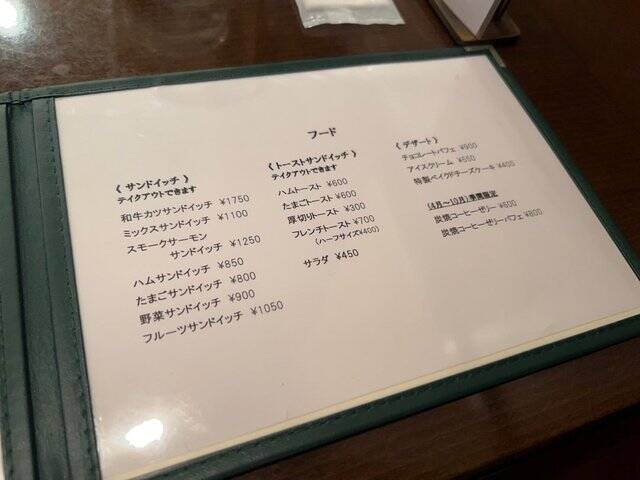 フード
《 サンドイッチ 》
テイクアウトできます
和牛カツサンドイッチ ¥1750
ミックスサンドイッチ ¥1100
スモークサーモン
サンドイッチ ¥1250
ハムサンドイッチ ¥850
たまごサンドイッチ ¥800
野菜サンドイッチ ¥900
フルーツサンドイッチ ¥1050
《 トーストサンドイッチ 》
テイクアウトできます
ハムトースト ¥600
たまごトースト ¥600
厚切りトースト ¥300
フレンチトースト ¥700
(ハーフサイズ¥400)
サラダ ¥450
《 デザート 》
チョコレートパフェ ¥900
アイスクリーム ¥550
特製ベイクドチーズケーキ ¥400
(4月～10月)季節限定
炭焼コーヒーゼリー ¥600
炭焼コーヒーゼリーパフェ ¥800